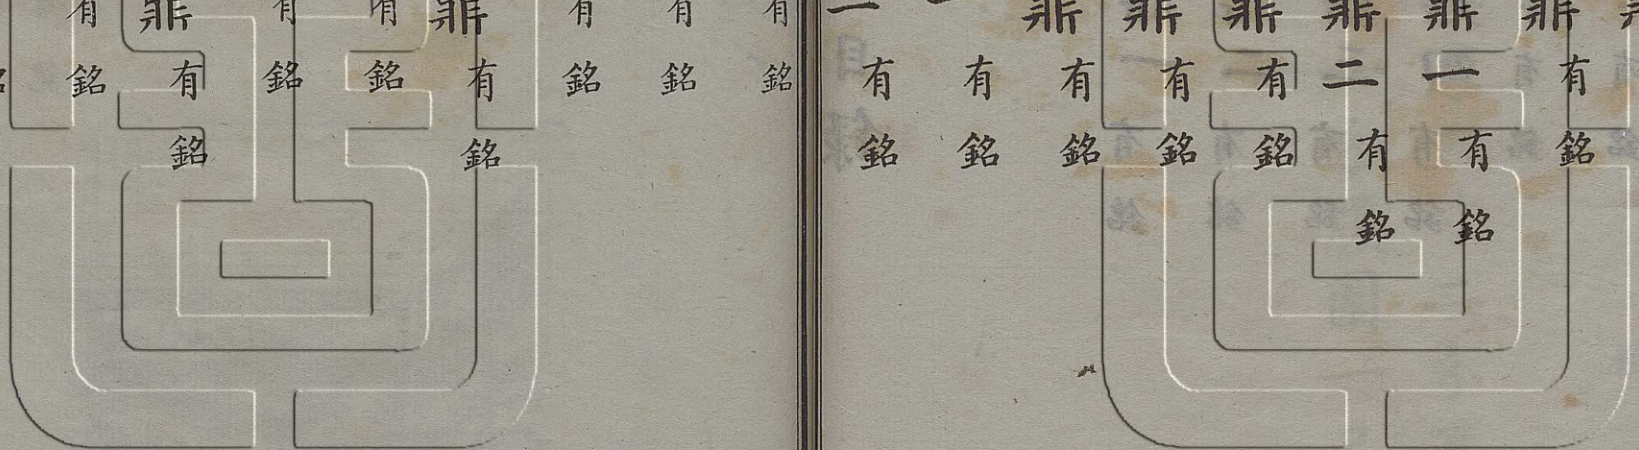 鼎有銘
鼎一有銘
鼎二有銘
鼎有銘
鼎有銘
鼎有銘
有銘
一有銘
有銘
有銘
有銘
鼎有銘
有銘
有銘
鼎有銘
有銘